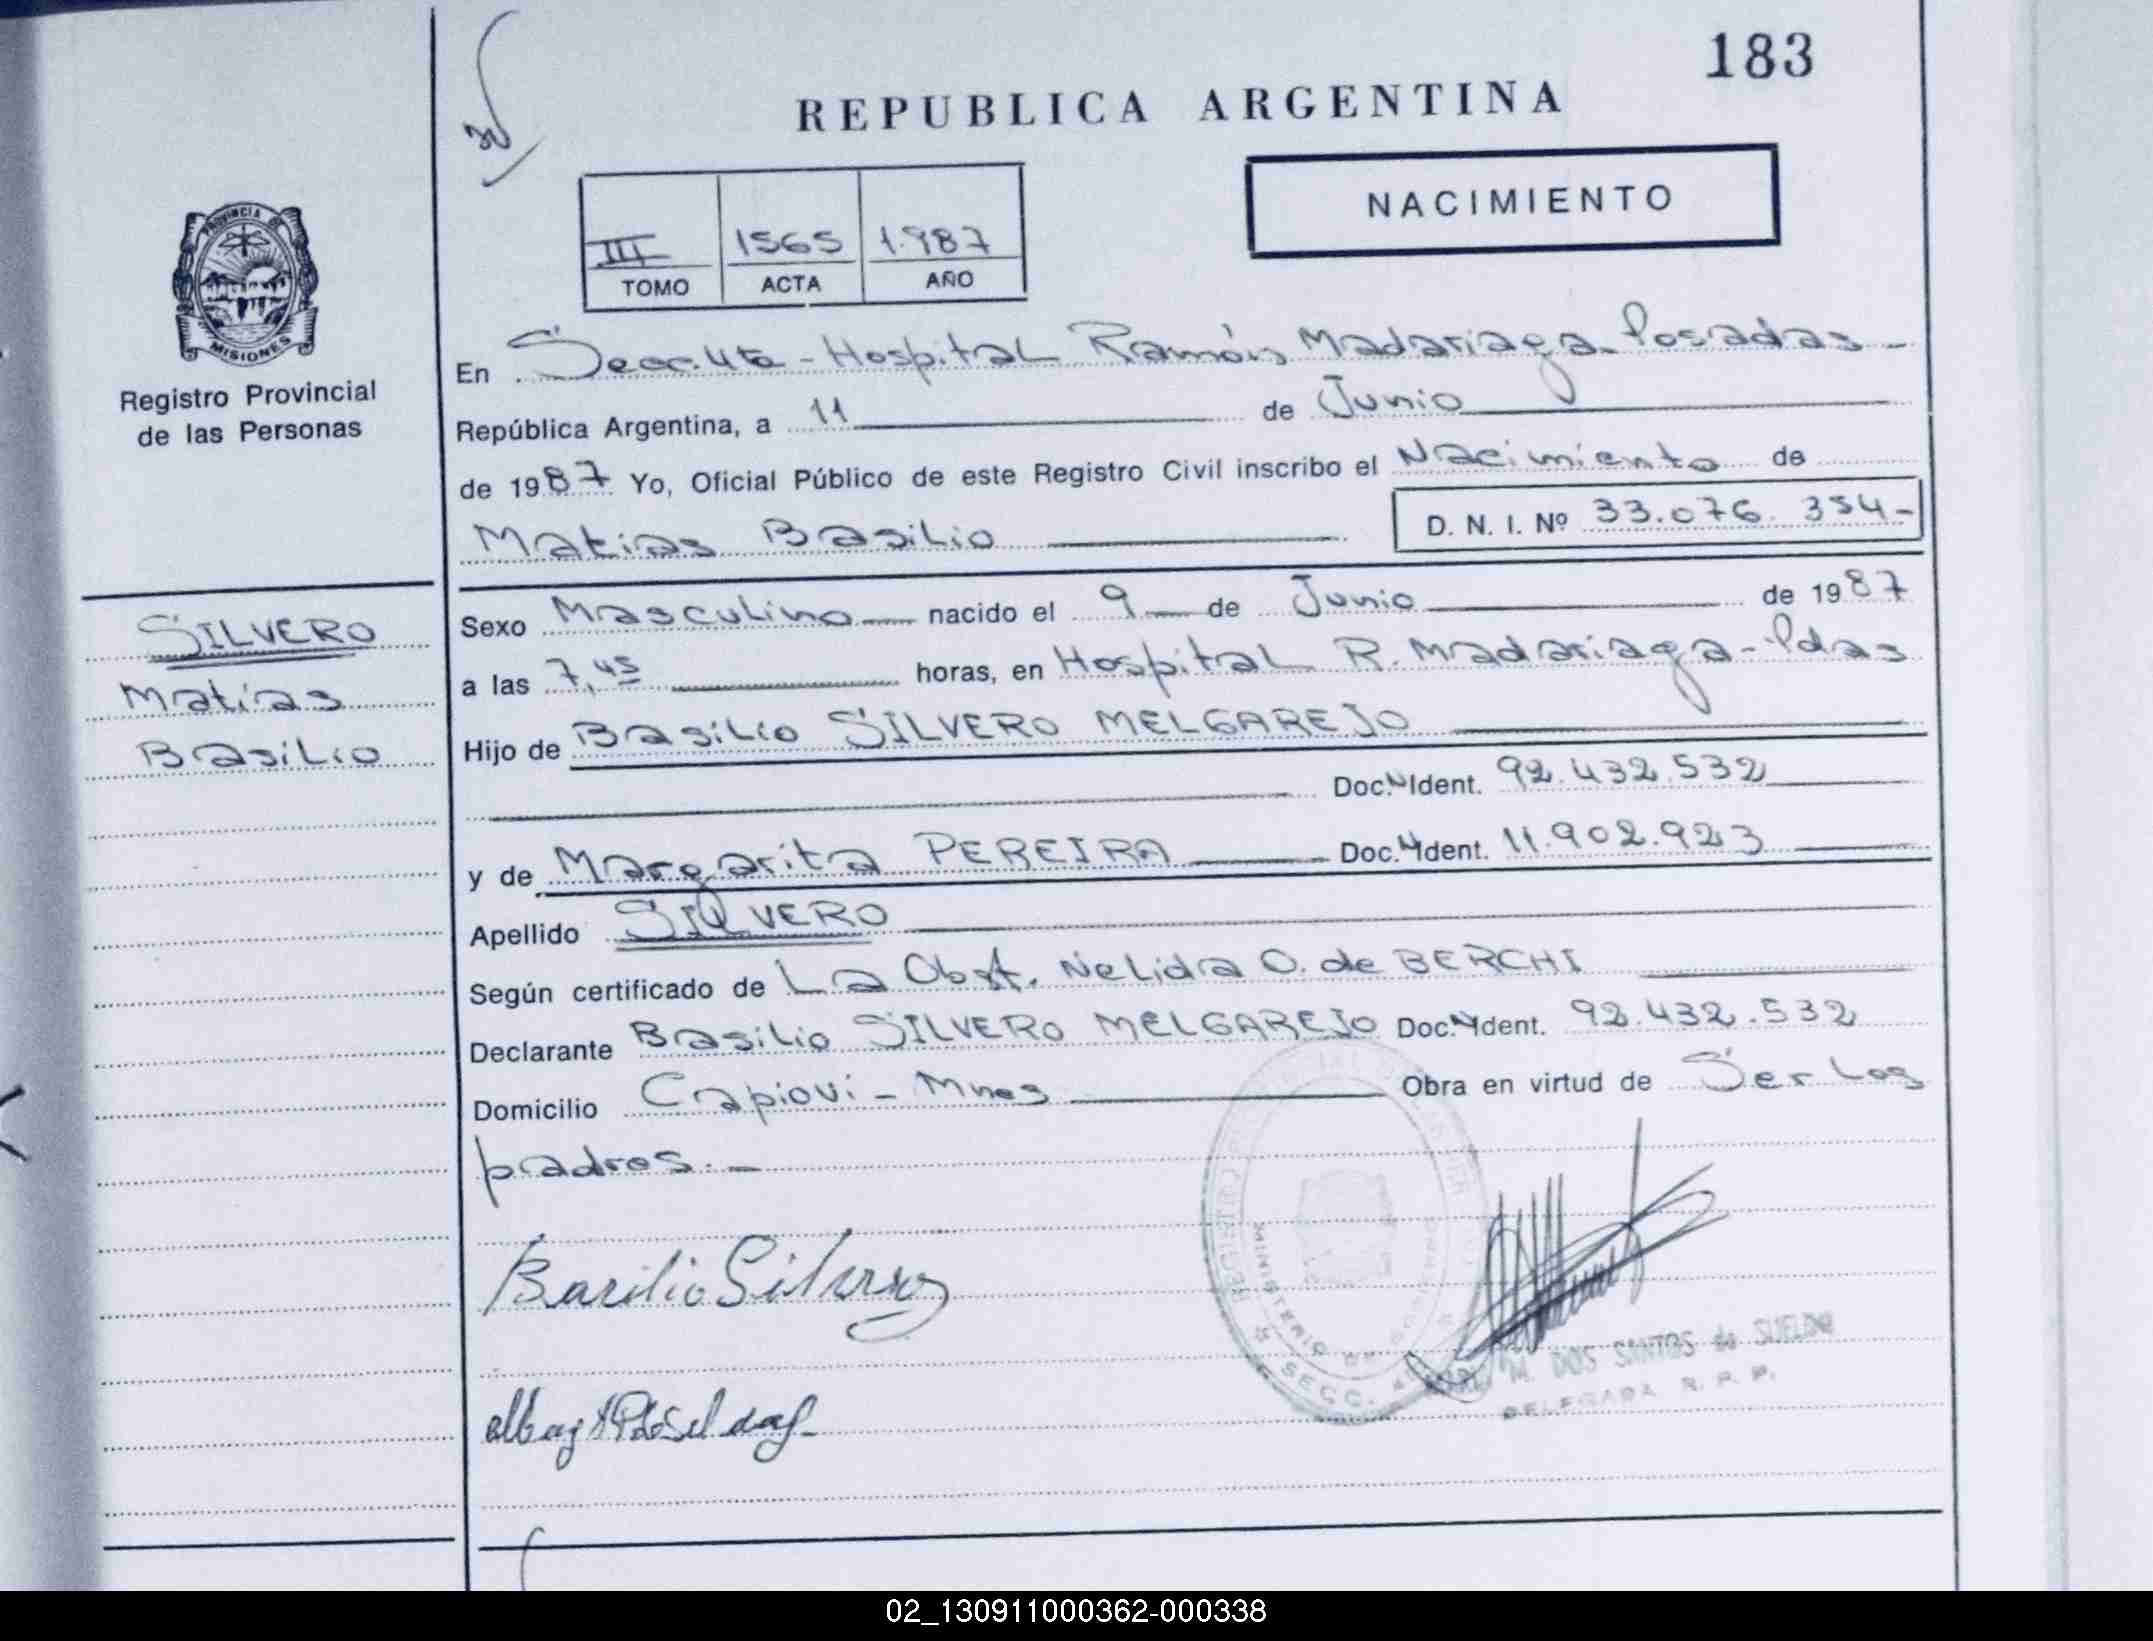 183
REPUBLICA ARGENTINA
NACIMIENTO
III 1565 1.987
TOMO ACTA AÑO
PROVINCIA
MISIONES
Registro Provincial
de las Personas
SILVERO
Matias
Basilio
En Secc. 4ta - Hospital Ramón Madariaga Posadas -
República Argentina, a 11 de Junio
de 1987 Yo, Oficial Público de este Registro Civil inscribo el Nacimiento de
Matias Basilio D. N. I. Nº 33.076.354-
Sexo Masculino nacido el 9 de Junio de 1987
a las 7,45 horas, en Hospital R. Madariaga - Pdas
Hijo de Basilio SILVERO MELGAREJO
Doc. Ident. 92.432.532
y de Margarita PEREIRA Doc. Ident. 11.902.923
Apellido SILVERO
Según certificado de La Obst. Nelida O. de BERCHI
Declarante Basilio SILVERO MELGAREJO Doc. Ident. 92.432.532
Domicilio Capiovi - Mnes Obra en virtud de Ser los
padres. -
Basilio Silvero
MINISTERIO DE
SECC.
M. DOS SANTOS de SUELDO
DELEGADA R. P. P.
02_130911000362-000338